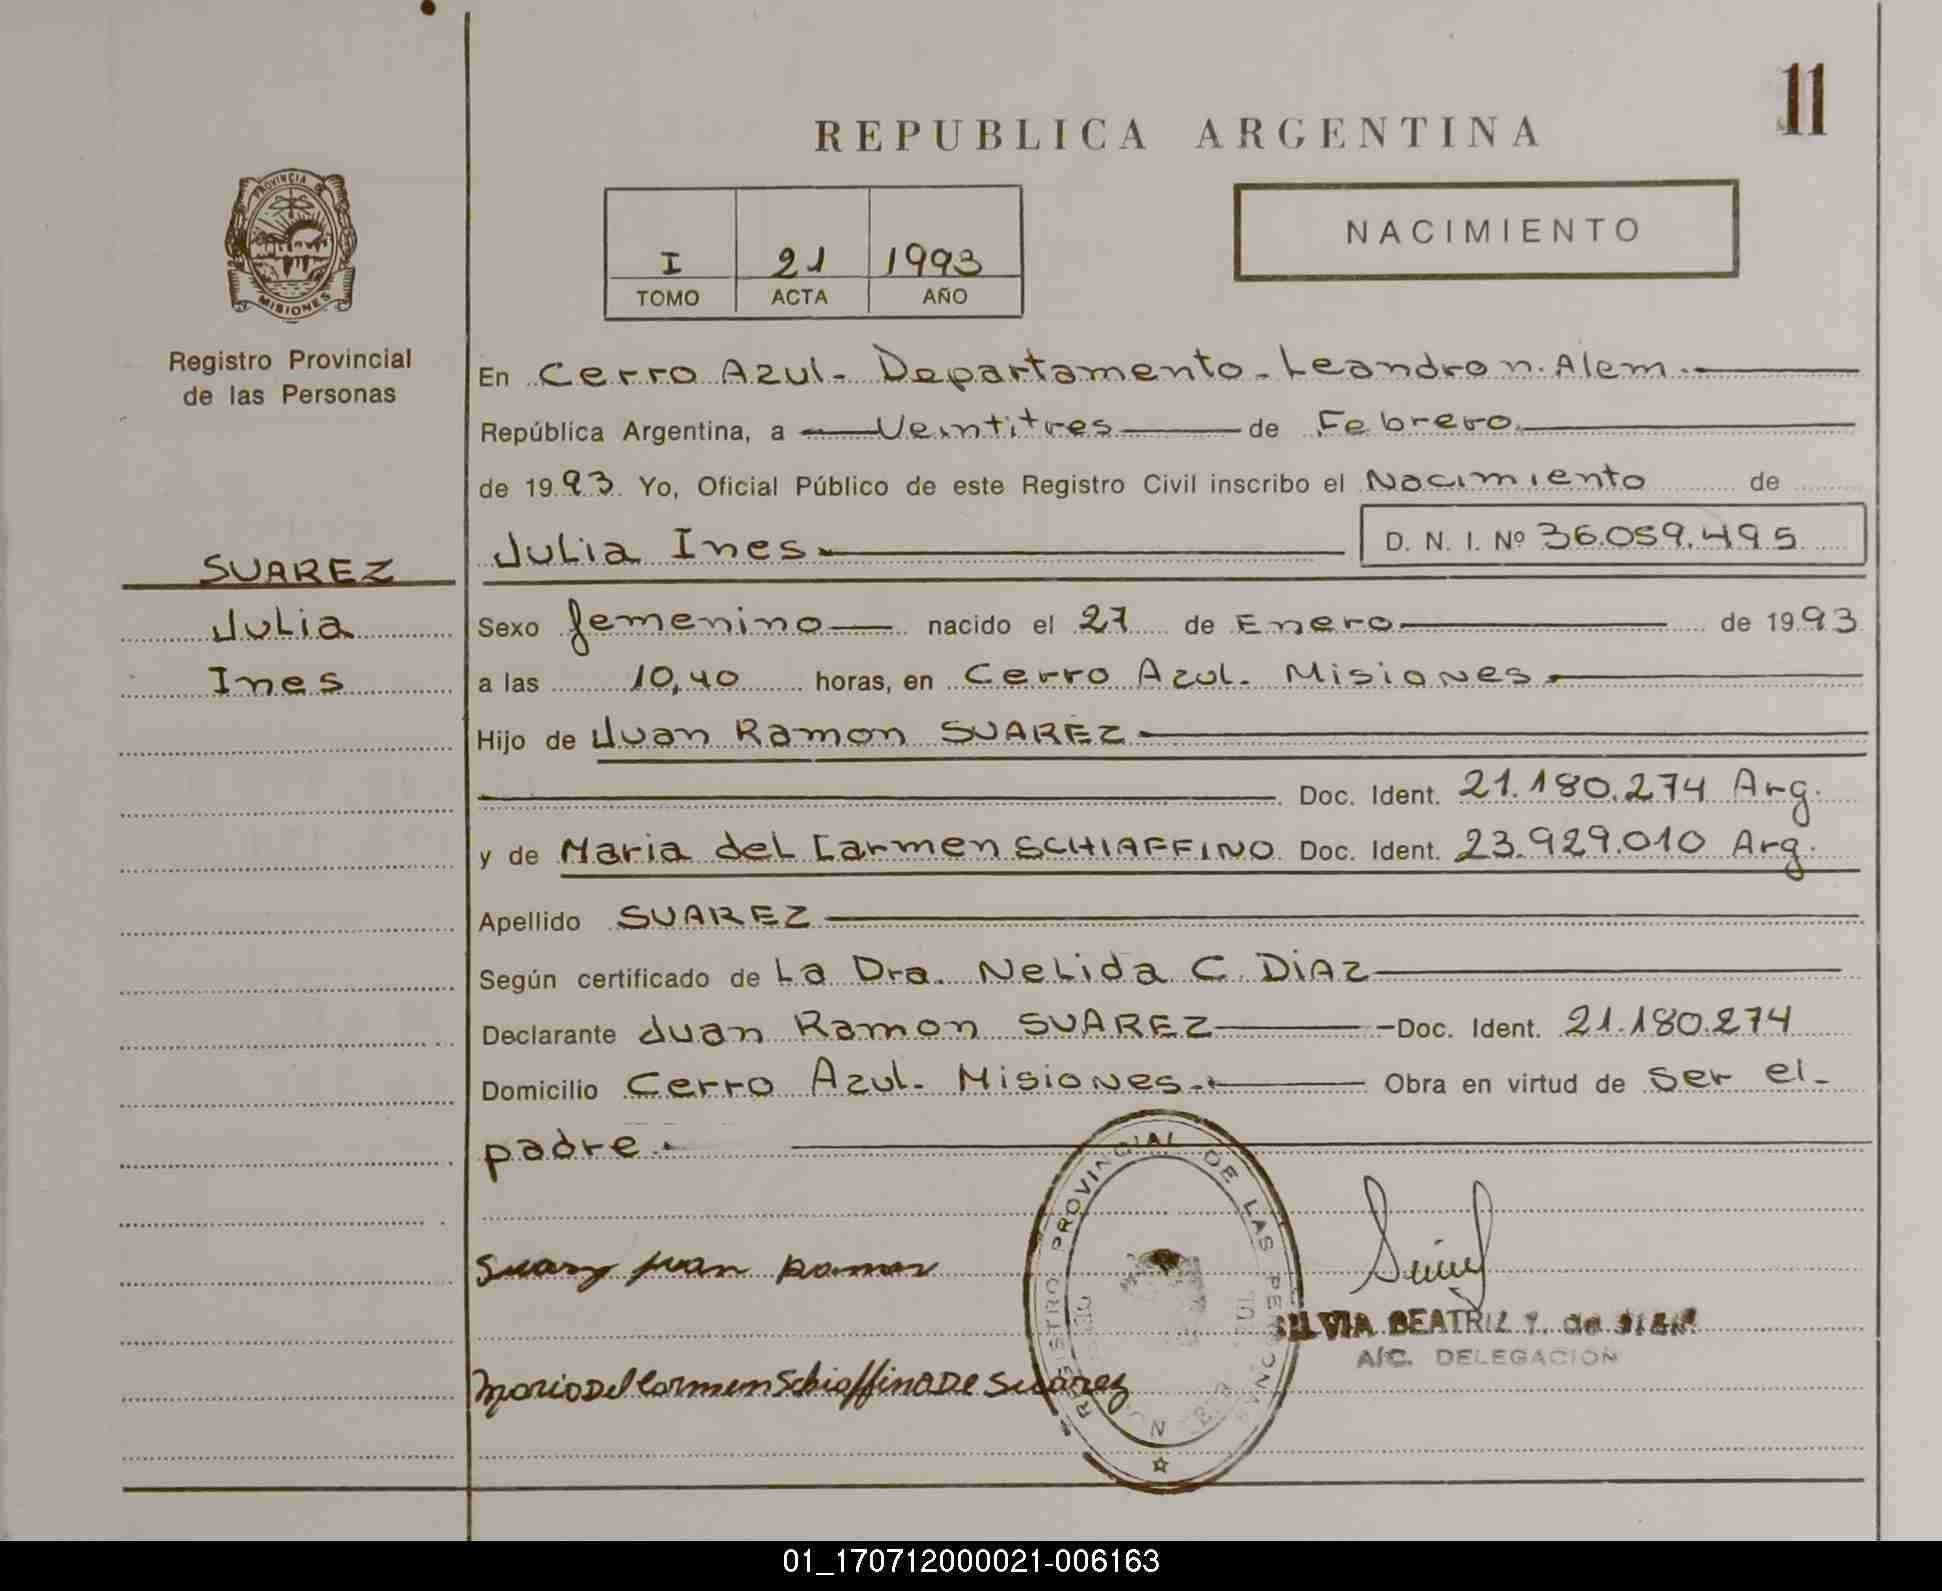 11
REPUBLICA ARGENTINA
NACIMIENTO
I 21 1993
TOMO ACTA AÑO
PROVINCIA DE
MISIONES
Registro Provincial
de las Personas
En Cerro Azul- Departamento- Leandro n. Alem.
República Argentina, a Veintitres de Febrero
de 1993 Yo, Oficial Público de este Registro Civil inscribo el Nacimiento de
Julia Ines D. N. I. Nº 36.059.495
SUAREZ
Julia
Ines
Sexo femenino nacido el 27 de Enero de 1993
a las 10,40 horas, en Cerro Azul- Misiones
Hijo de Juan Ramon SUAREZ
Doc. Ident. 21.180.274 Arg.
y de Maria del Carmen SCHIAFFINO Doc. Ident. 23.929.010 Arg.
Apellido SUAREZ
Según certificado de La Dra. Nelida C. DIAZ
Declarante Juan Ramon SUAREZ -Doc. Ident. 21.180.274
Domicilio Cerro Azul- Misiones- Obra en virtud de ser el-
padre.
Suarez Juan Ramon
REGISTRO PROVINCIAL DE LAS PERSONAS
SILVIA BEATRIZ
A/C. DELEGACION
Maria Del Carmen Schiaffino De Suarez
01_170712000021-006163